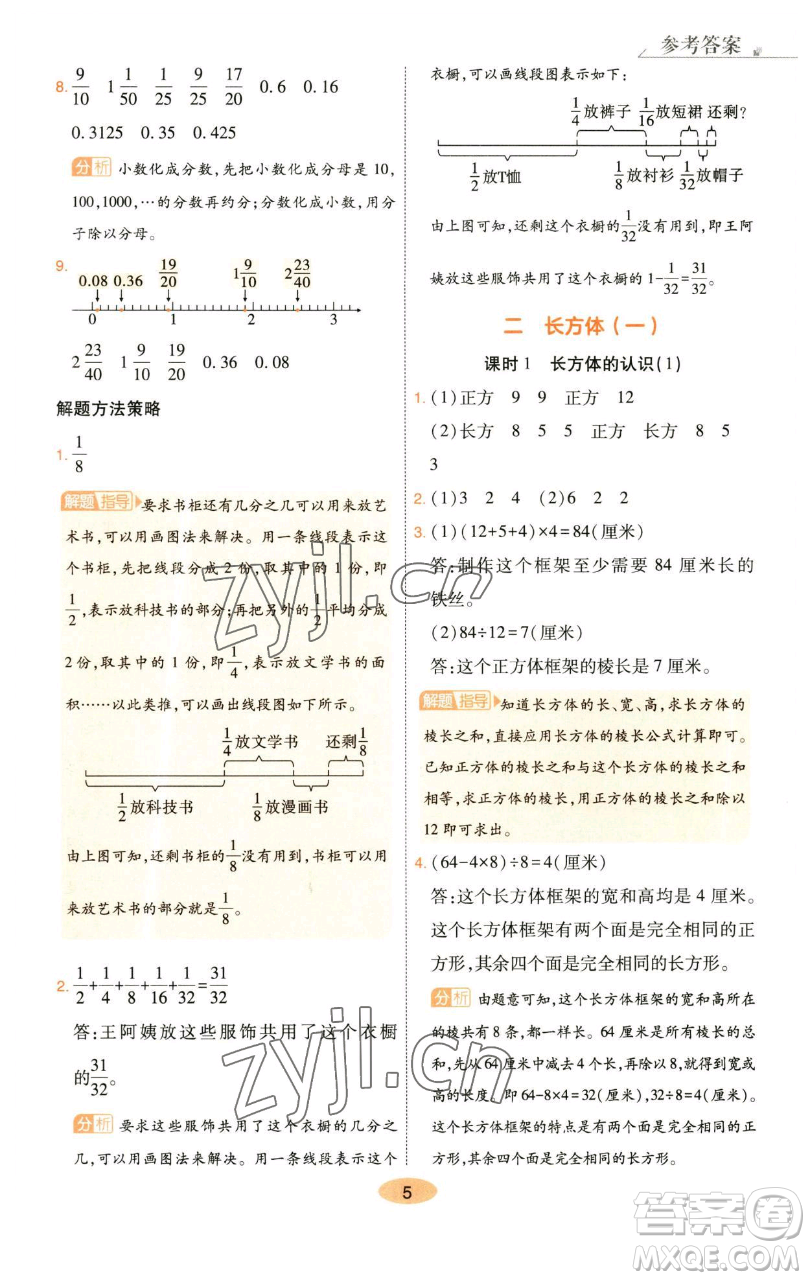 参考答案
8. 9/10 1 1/50 1/25 9/25 17/20 0.6 0.16
0.3125 0.35 0.425
分析 小数化成分数,先把小数化成分母是 10,
100,1000,…的分数再约分;分数化成小数,用分
子除以分母。
9.
0.08 0.36 19/20 1 9/10 2 23/40
0 1 2 3
2 23/40 1 9/10 19/20 0.36 0.08
解题方法策略
1. 1/8
解题指导 要求书柜还有几分之几可以用来放艺
术书,可以用画图法来解决。用一条线段表示这
个书柜,先把线段分成 2 份,取其中的 1 份,即
1/2,表示放科技书的部分;再把另外的1/2平均分成
2 份,取其中的 1 份,即1/4,表示放文学书的面
积……以此类推,可以画出线段图如下所示。
1/4放文学书 还剩1/8
1/2放科技书 1/8放漫画书
由上图可知,还剩书柜的1/8没有用到,书柜可以用
来放艺术书的部分就是1/8。
2. 1/2+1/4+1/8+1/16+1/32=31/32
答:王阿姨放这些服饰共用了这个衣橱
的31/32。
分析 要求这些服饰共用了这个衣橱的几分之
几,可以用画图法来解决。用一条线段表示这个
衣橱,可以画线段图表示如下:
1/4放裤子 1/16放短裙 还剩?
1/2放T恤 1/8放衬衫 1/32放帽子
由上图可知,还剩这个衣橱的1/32没有用到,即王阿
姨放这些服饰共用了这个衣橱的 1-1/32=31/32。
二 长方体(一)
课时 1 长方体的认识(1)
1. (1)正方 9 9 正方 12
(2)长方 8 5 5 正方 长方 8 5
3
2. (1)3 2 4 (2)6 2 2
3. (1)(12+5+4)×4=84(厘米)
答:制作这个框架至少需要 84 厘米长的
铁丝。
(2)84÷12=7(厘米)
答:这个正方体框架的棱长是 7 厘米。
解题指导 知道长方体的长、宽、高,求长方体的
棱长之和,直接应用长方体的棱长公式计算即可。
已知正方体的棱长之和与这个长方体的棱长之和
相等,求正方体的棱长,用正方体的棱长之和除以
12 即可求出。
4. (64-4×8)÷8=4(厘米)
答:这个长方体框架的宽和高均是 4 厘米。
这个长方体框架有两个面是完全相同的正
方形,其余四个面是完全相同的长方形。
分析 由题意可知,这个长方体框架的宽和高所在
的棱共有 8 条,都一样长。64 厘米是所有棱长的总
和,先从 64 厘米中减去 4 个长,再除以 8,就得到宽和
高的长度。即 64-8×4=32(厘米),32÷8=4(厘米)。
这个长方体框架的特点是有两个面是完全相同的正
方形,其余四个面是完全相同的长方形。
5
zyjl.cn
zyjl.cn
答案圈
MXQE.COM